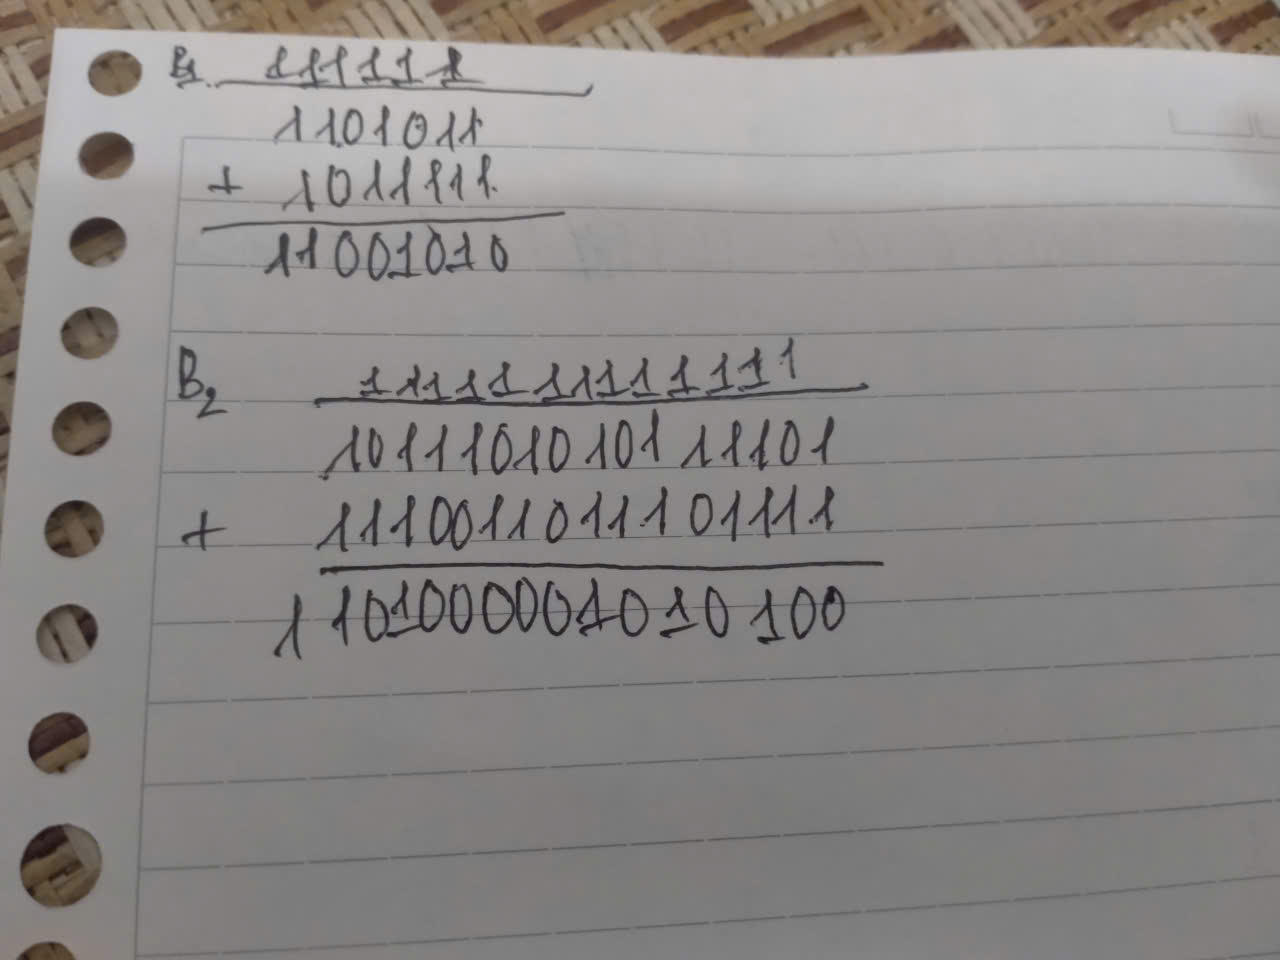 B1 111111
1101011
+ 1011111
11001010
B2 1111111111111
1011101010111101
+ 1110011011101111
1101000001010100